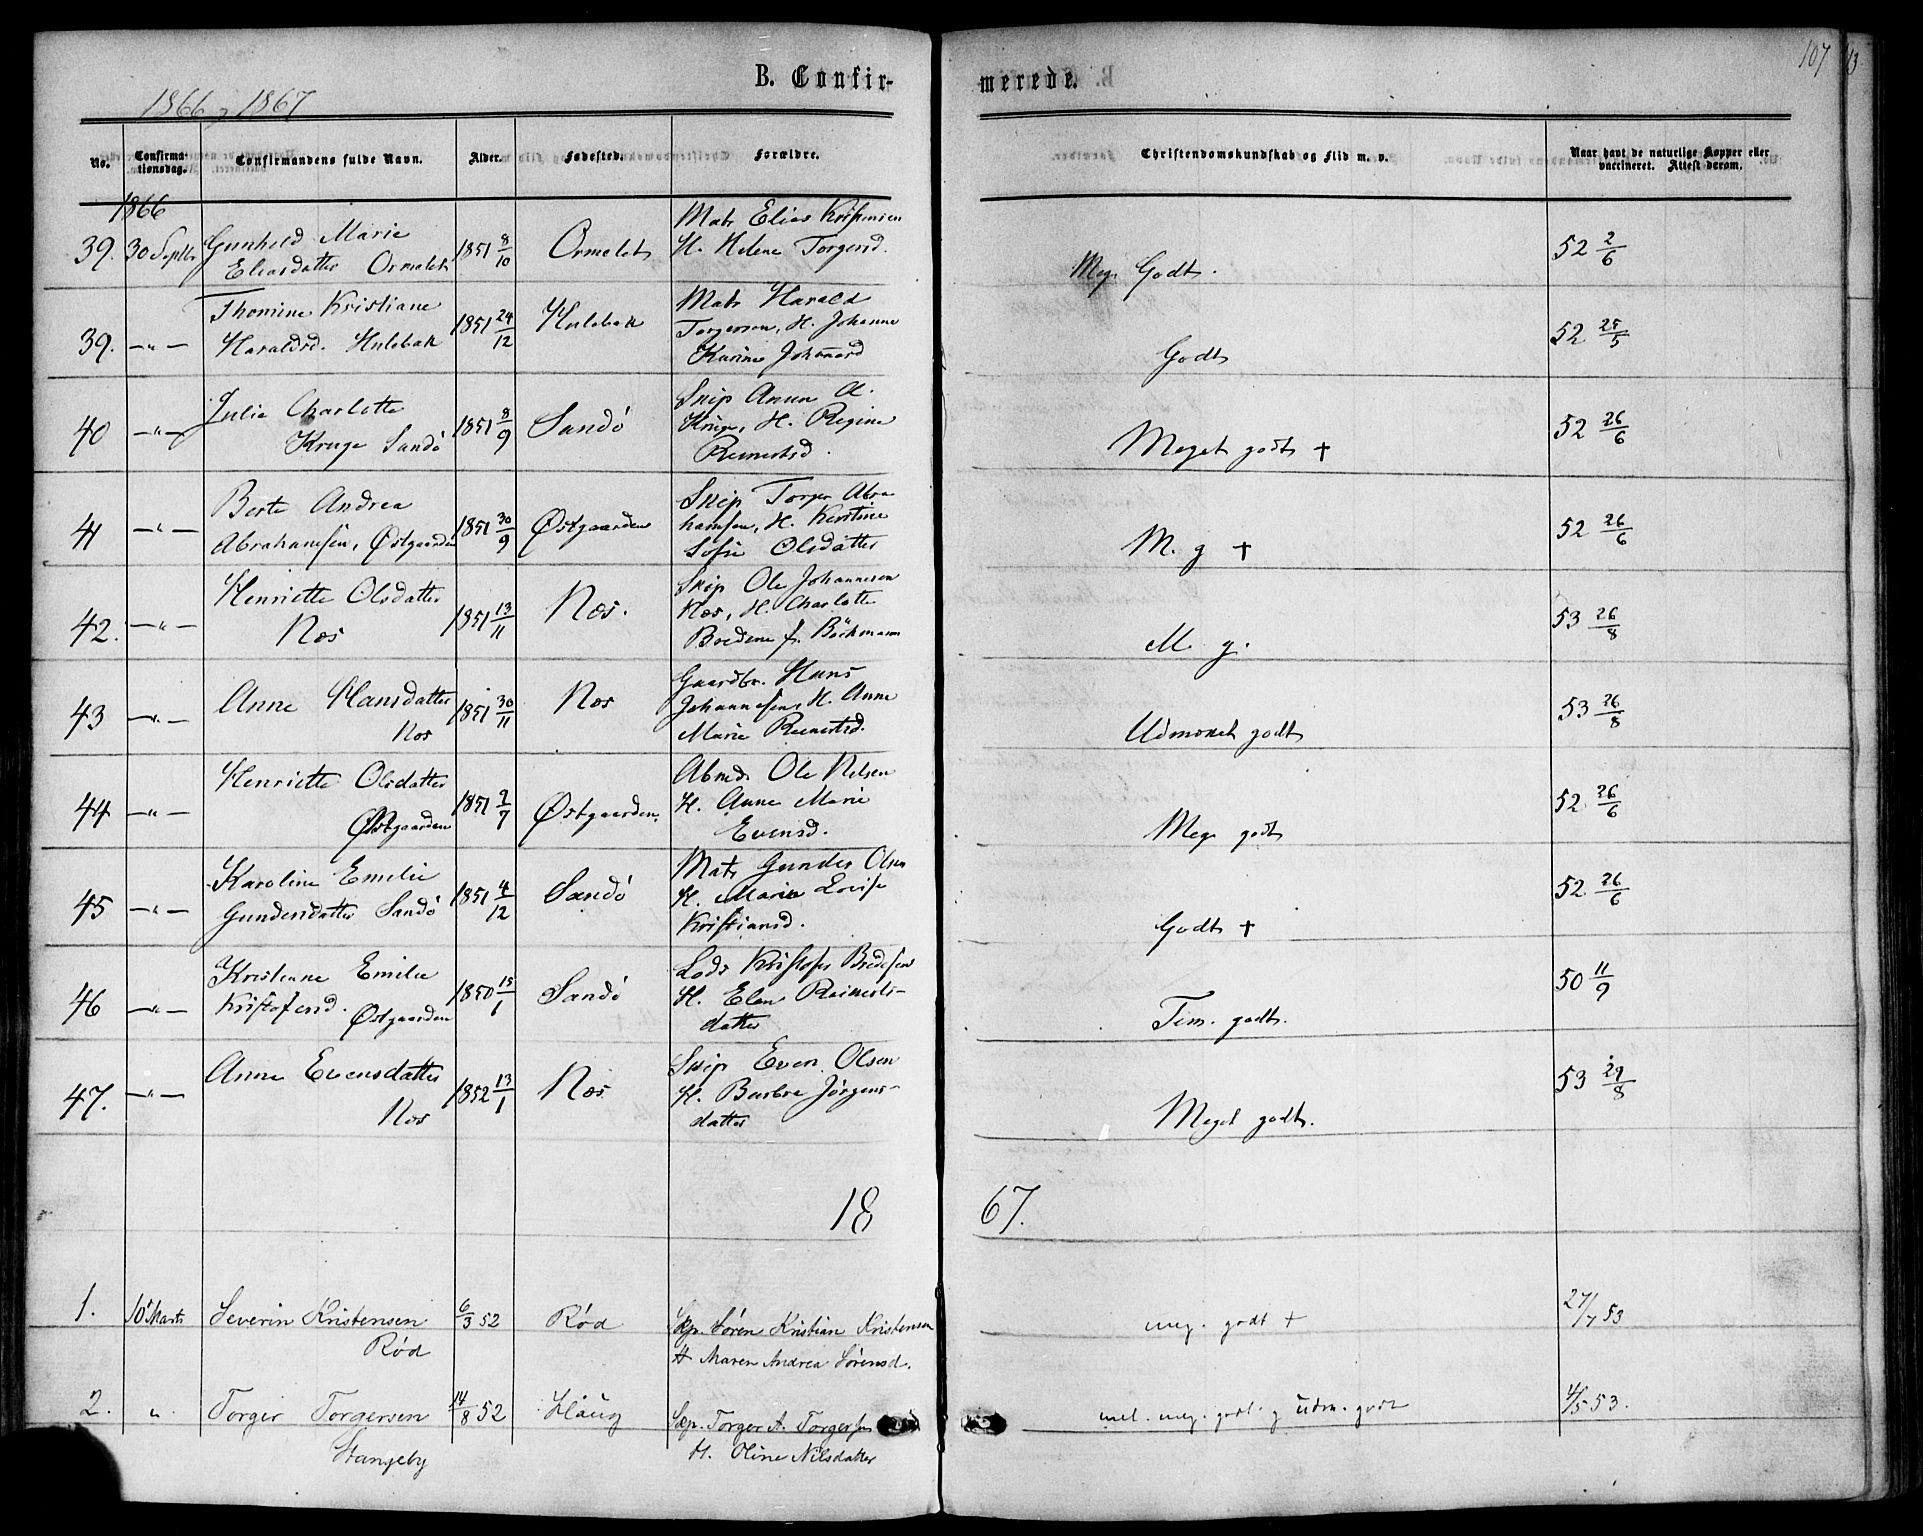 B. Confir-
merede.
107
13
1866 og 1867
No.
Confirma-
tionsdag.
Confirmandens fulde Navn.
Alder.
Fødested.
Forældre.
Christendomskundskab og Flid m. v.
Naar havt de naturlige Kopper eller
vaccineret. Attest derom.
1866
39. 30 Septbr Gunhild Marie
Eliasdatter Ormelet 1851 8/10 Ormelet
Matr Elias Kristensen
H. Helene Torgersd.
Meg. Godt.
52 2/6
39. -"- Thomine Kristiane
Haraldsd. Hulebak 1851 24/12 Hulebak
Matr Harald
Torgersen, H. Johanne
Karine Johansd
Godt
52 25/5
40 -"- Julie Charlotte
Kruge Sandö 1851 8/9 Sandö
Skip Anun A.
Kruge, H. Regine
Reinertsd.
Meget godt +
52 26/6
41 -"- Berte Andrea
Abrahamsen, Østgaarden 1851 30/9 Østgaarden
Skip Torger Abra
hamsen, H. Kerstine
Sofie Olsdatter
M. g +
52 26/6
42. -"- Henriette Olsdatter
Næs 1851 13/11 Næs.
Skip Ole Johannesen
Næs, H. Charlotte
Bredine f. Böckmann
M. g.
53 26/8
43 -"- Anne Hansdatter
Næs 1851 30/11 Næs
Gaardbr. Hans
Johannesen, H. Anne
Marie Reinertsd.
Udmærket godt
53 26/8
44 -"- Henriette Olsdatter
Østgaarden 1851 2/7 Østgaarden.
Arbmd. Ole Nilsen
H. Anne Marie
Evensd.
Meg. godt
52 26/6
45 -"- Karoline Emilie
Gundersdatter Sandö 1851 4/12 Sandö
Matr Gunder Olsen
H. Maria Lovise
Kristiansd.
Godt +
52 26/6
46 -"- Kristianne Emilie
Kristofersd. Østgaarden 1850 15/1 Sandö
Lods Kristofer Bredesen
H. Elen Reinerts-
datter
Tem. godt.
50 11/9
47. -"- Anne Evensdatter
Næs 1852 13/1 Næs
Skip Even Olsen
H. Barbra Jørgens-
datter
Meget godt.
53 29/8
18 67.
1. 10' Marts Severin Kristensen
Rød 6/3 52 Rød
Skp. Søren Kristian Kristensen
H Maren Andrea Sørensd.
meg. godt +
27/7 53
2. " Torger Torgersen
Stangeby 14/8 52 Haug
Skp. Torger A. Torgersen
H. Oline Nilsdatter
mel. meg. godt og udm. godt
4/5 53.